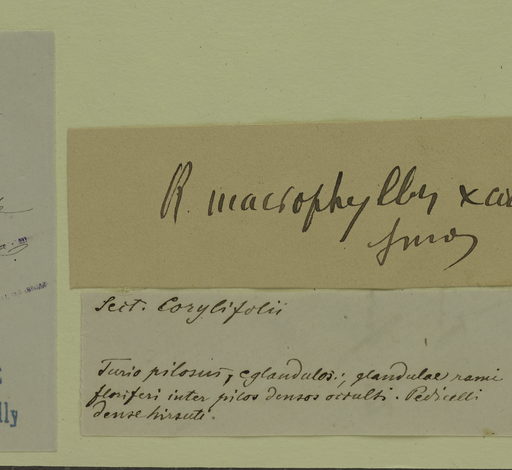 R. macrophyllus x
Sect. Corylifolii
Turio pilosus, eglandulos:, glandulae rami
floriferi inter pilos densos occulti. Pedicelli
dense hirsuti.
lly